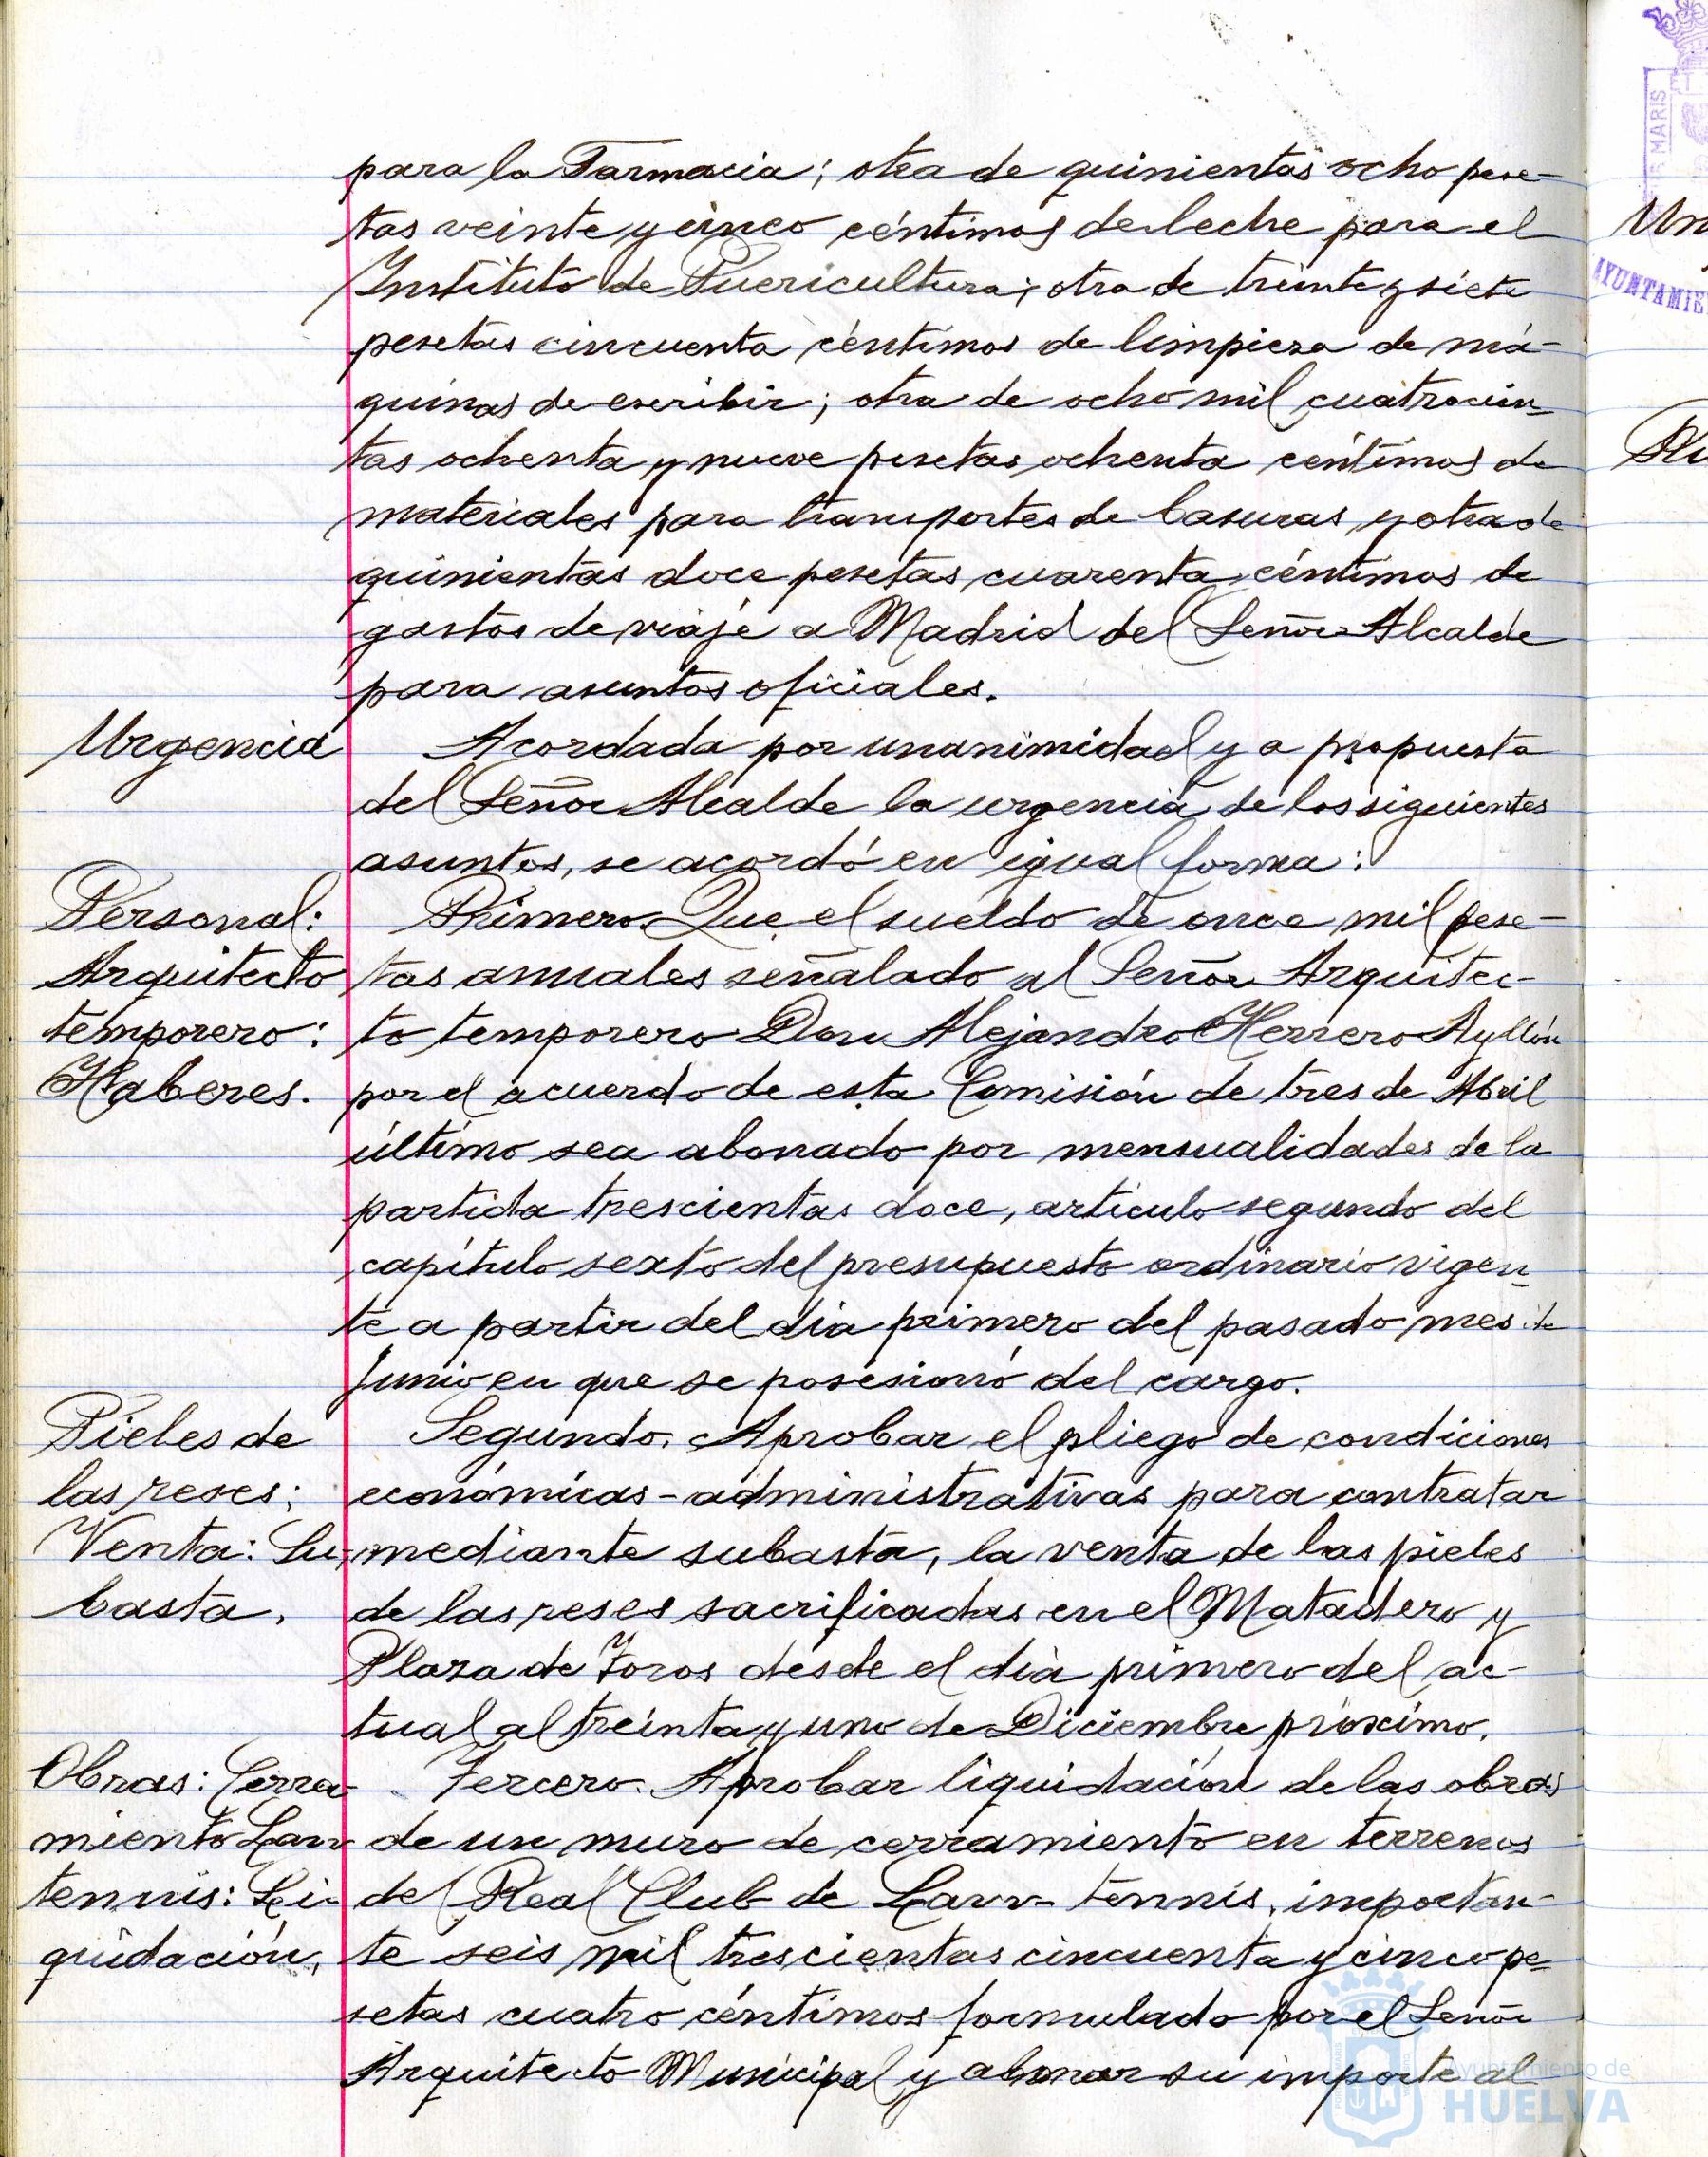 para la Farmacia; otra de quinientas ocho pese-
tas veinte y cinco céntimos de leche para el
Instituto de Puericultura; otra de treinta y siete
pesetas cincuenta céntimos de limpieza de má-
quinas de escribir; otra de ocho mil cuatrocien-
tas ochenta y nueve pesetas ochenta céntimos de
materiales para transportes de basuras, y otra de
quinientas doce pesetas cuarenta céntimos de
gastos de viaje a Madrid del Señor Alcalde
para asuntos oficiales.
Urgencia
Acordada por unanimidad y a propuesta
del Señor Alcalde la urgencia de los siguientes
asuntos, se acordó en igual forma:
Personal:
Arquitecto
temporero:
Haberes.
Primero. Que el sueldo de once mil pese-
tas anuales señalado al Señor Arquitec-
to temporero Don Alejandro Herrero Ayllón
por el acuerdo de esta Comisión de tres de Abril
último sea abonado por mensualidades de la
partida trescientas doce, artículo segundo del
capítulo sexto del presupuesto ordinario vigen-
te a partir del día primero del pasado mes de
Junio en que se posesionó del cargo.
Pieles de
las reses;
Venta: Su-
basta.
Segundo. Aprobar el pliego de condiciones
económicas-administrativas para contratar
mediante subasta, la venta de las pieles
de las reses sacrificadas en el Matadero y
Plaza de Toros desde el día primero del ac-
tual al treinta y uno de Diciembre próximo.
Obras: Cerra-
miento Lawn
tennis: Li-
quidación.
Tercero. Aprobar liquidación de las obras
de un muro de cerramiento en terrenos
del Real Club de Lawn-tennis, importan-
te seis mil trescientas cincuenta y cinco pe-
setas cuatro céntimos formulado por el Señor
Arquitecto Municipal y abonar su importe al
Un
Plu
MARIS
AYUNTAMIE
Ayuntamiento de
HUELVA